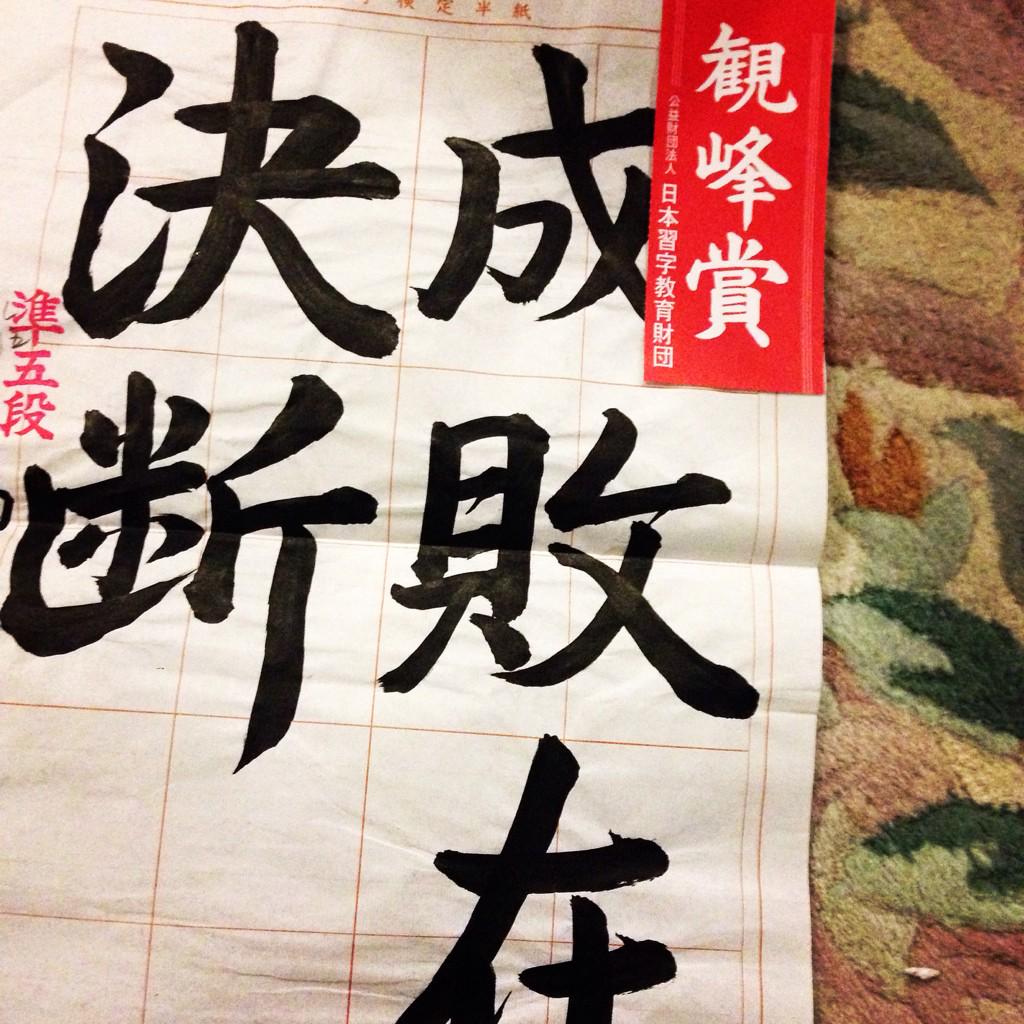 検定半紙
観峰賞
公益財団法人 日本習字教育財団
成敗在
決断
準五段